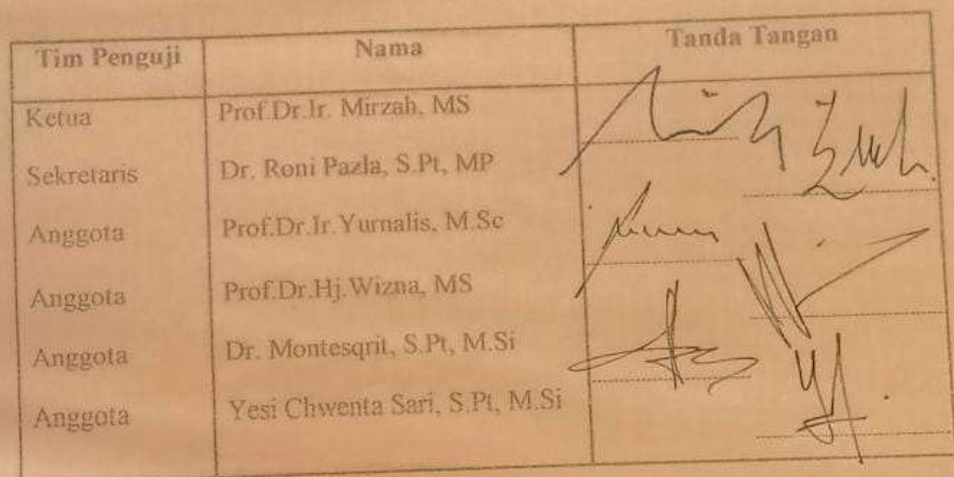 Tim Penguji Nama Tanda Tangan
Ketua Prof.Dr.Ir. Mirzah, MS
Sekretaris Dr. Roni Pazla, S.Pt, MP
Anggota Prof.Dr.Ir.Yurnalis, M.Sc
Anggota Prof.Dr.Hj.Wizna, MS
Anggota Dr. Montesqrit, S.Pt, M.Si
Anggota Yesi Chwenta Sari, S.Pt, M.Si